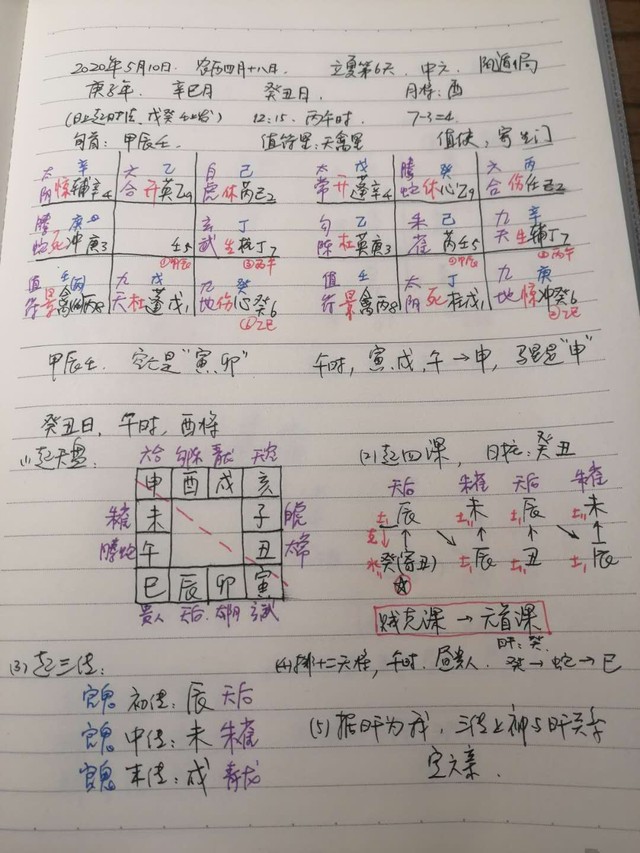 2020年5月10日. 农历四月十八日. 立夏第6天. 中元. 阳遁1局
庚子年. 辛巳月 癸丑日. 月将:酉
(日上起时法, 戊癸壬子始) 12:15. 丙午时. 7-3=4.
旬首: 甲辰壬. 值符星:天禽星 值使, 寄生门
太 辛 六 乙 白 己 太 戊 螣 癸 六 丙
阴惊辅辛4 合开英乙9 虎休芮己2 常开蓬辛4 蛇休心乙9 合伤任己2
螣 庚 玄 丁 勾 乙 朱 己 九 辛
蛇死冲庚3 壬5 武生柱丁7 陈杜英庚3 雀芮壬5 天生辅丁7
①甲辰 ③丙午 ①甲辰 ③丙午
值 壬(丙) 九 戊 九 癸 值 壬 太 丁 九 庚
符景禽丙8 天杜蓬戊1 地伤心癸6 符景禽丙8 阴死柱戊1 地惊冲癸6
②乙巳 ②乙巳
甲辰壬. 空亡是"寅.卯" 午时, 寅.戌.午→申, 马星是"申"
癸丑日, 午时, 酉将
(1)起天盘: (2)起四课, 日柱:癸丑
六合 勾陈 青龙 天空
申 酉 戌 亥
朱雀 未 子 白虎
螣蛇 午 丑 太常
巳 辰 卯 寅
贵人 天后 太阴 玄武
天后 朱雀 天后 朱雀
土辰 土未 土辰 土未
克
水癸(寄丑) 土辰 土丑 土辰
贼克课 → 元首课
日干:癸.
(3)起三传: (4)排十二天将, 午时. 昼贵人. 癸→蛇→巳
官鬼 初传: 辰 天后
官鬼 中传: 未 朱雀
官鬼 末传: 戌 青龙
(5)据日干为我, 三传上神与日干关系
定六亲.